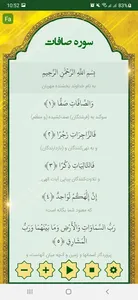 10:52
Fa
سوره صافات
بِسْمِ اللَّهِ الرَّحْمَنِ الرَّحِيمِ
به نام خداوند بخشنده مهربان
وَالصَّافَّاتِ صَفًّا ﴿۱﴾
فَالزَّاجِرَاتِ زَجْرًا ﴿۲﴾
فَالتَّالِيَاتِ ذِكْرًا ﴿۳﴾
إِنَّ إِلَهَكُمْ لَوَاحِدٌ ﴿۴﴾
که معبود شما یگانه است
رَبُّ السَّمَاوَاتِ وَالْأَرْضِ وَمَا بَيْنَهُمَا وَرَبُّ
الْمَشَارِقِ ﴿۵﴾